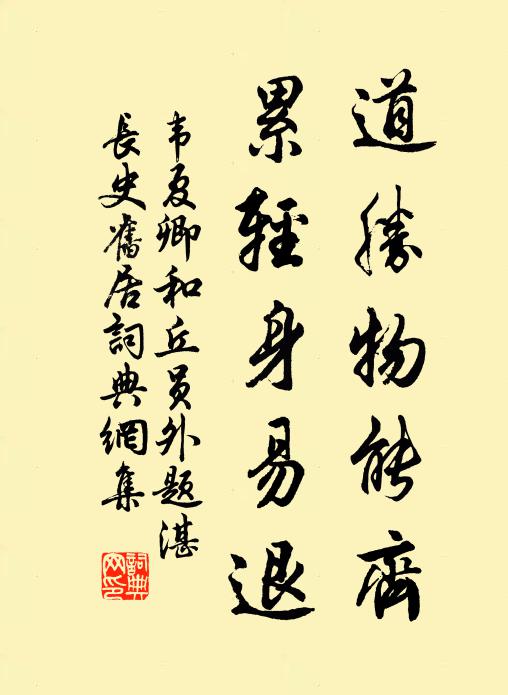 道勝物能齊
累輕身易退
韦夏卿和丘員外题湛
長史舊居詞典網集
詞典
网印